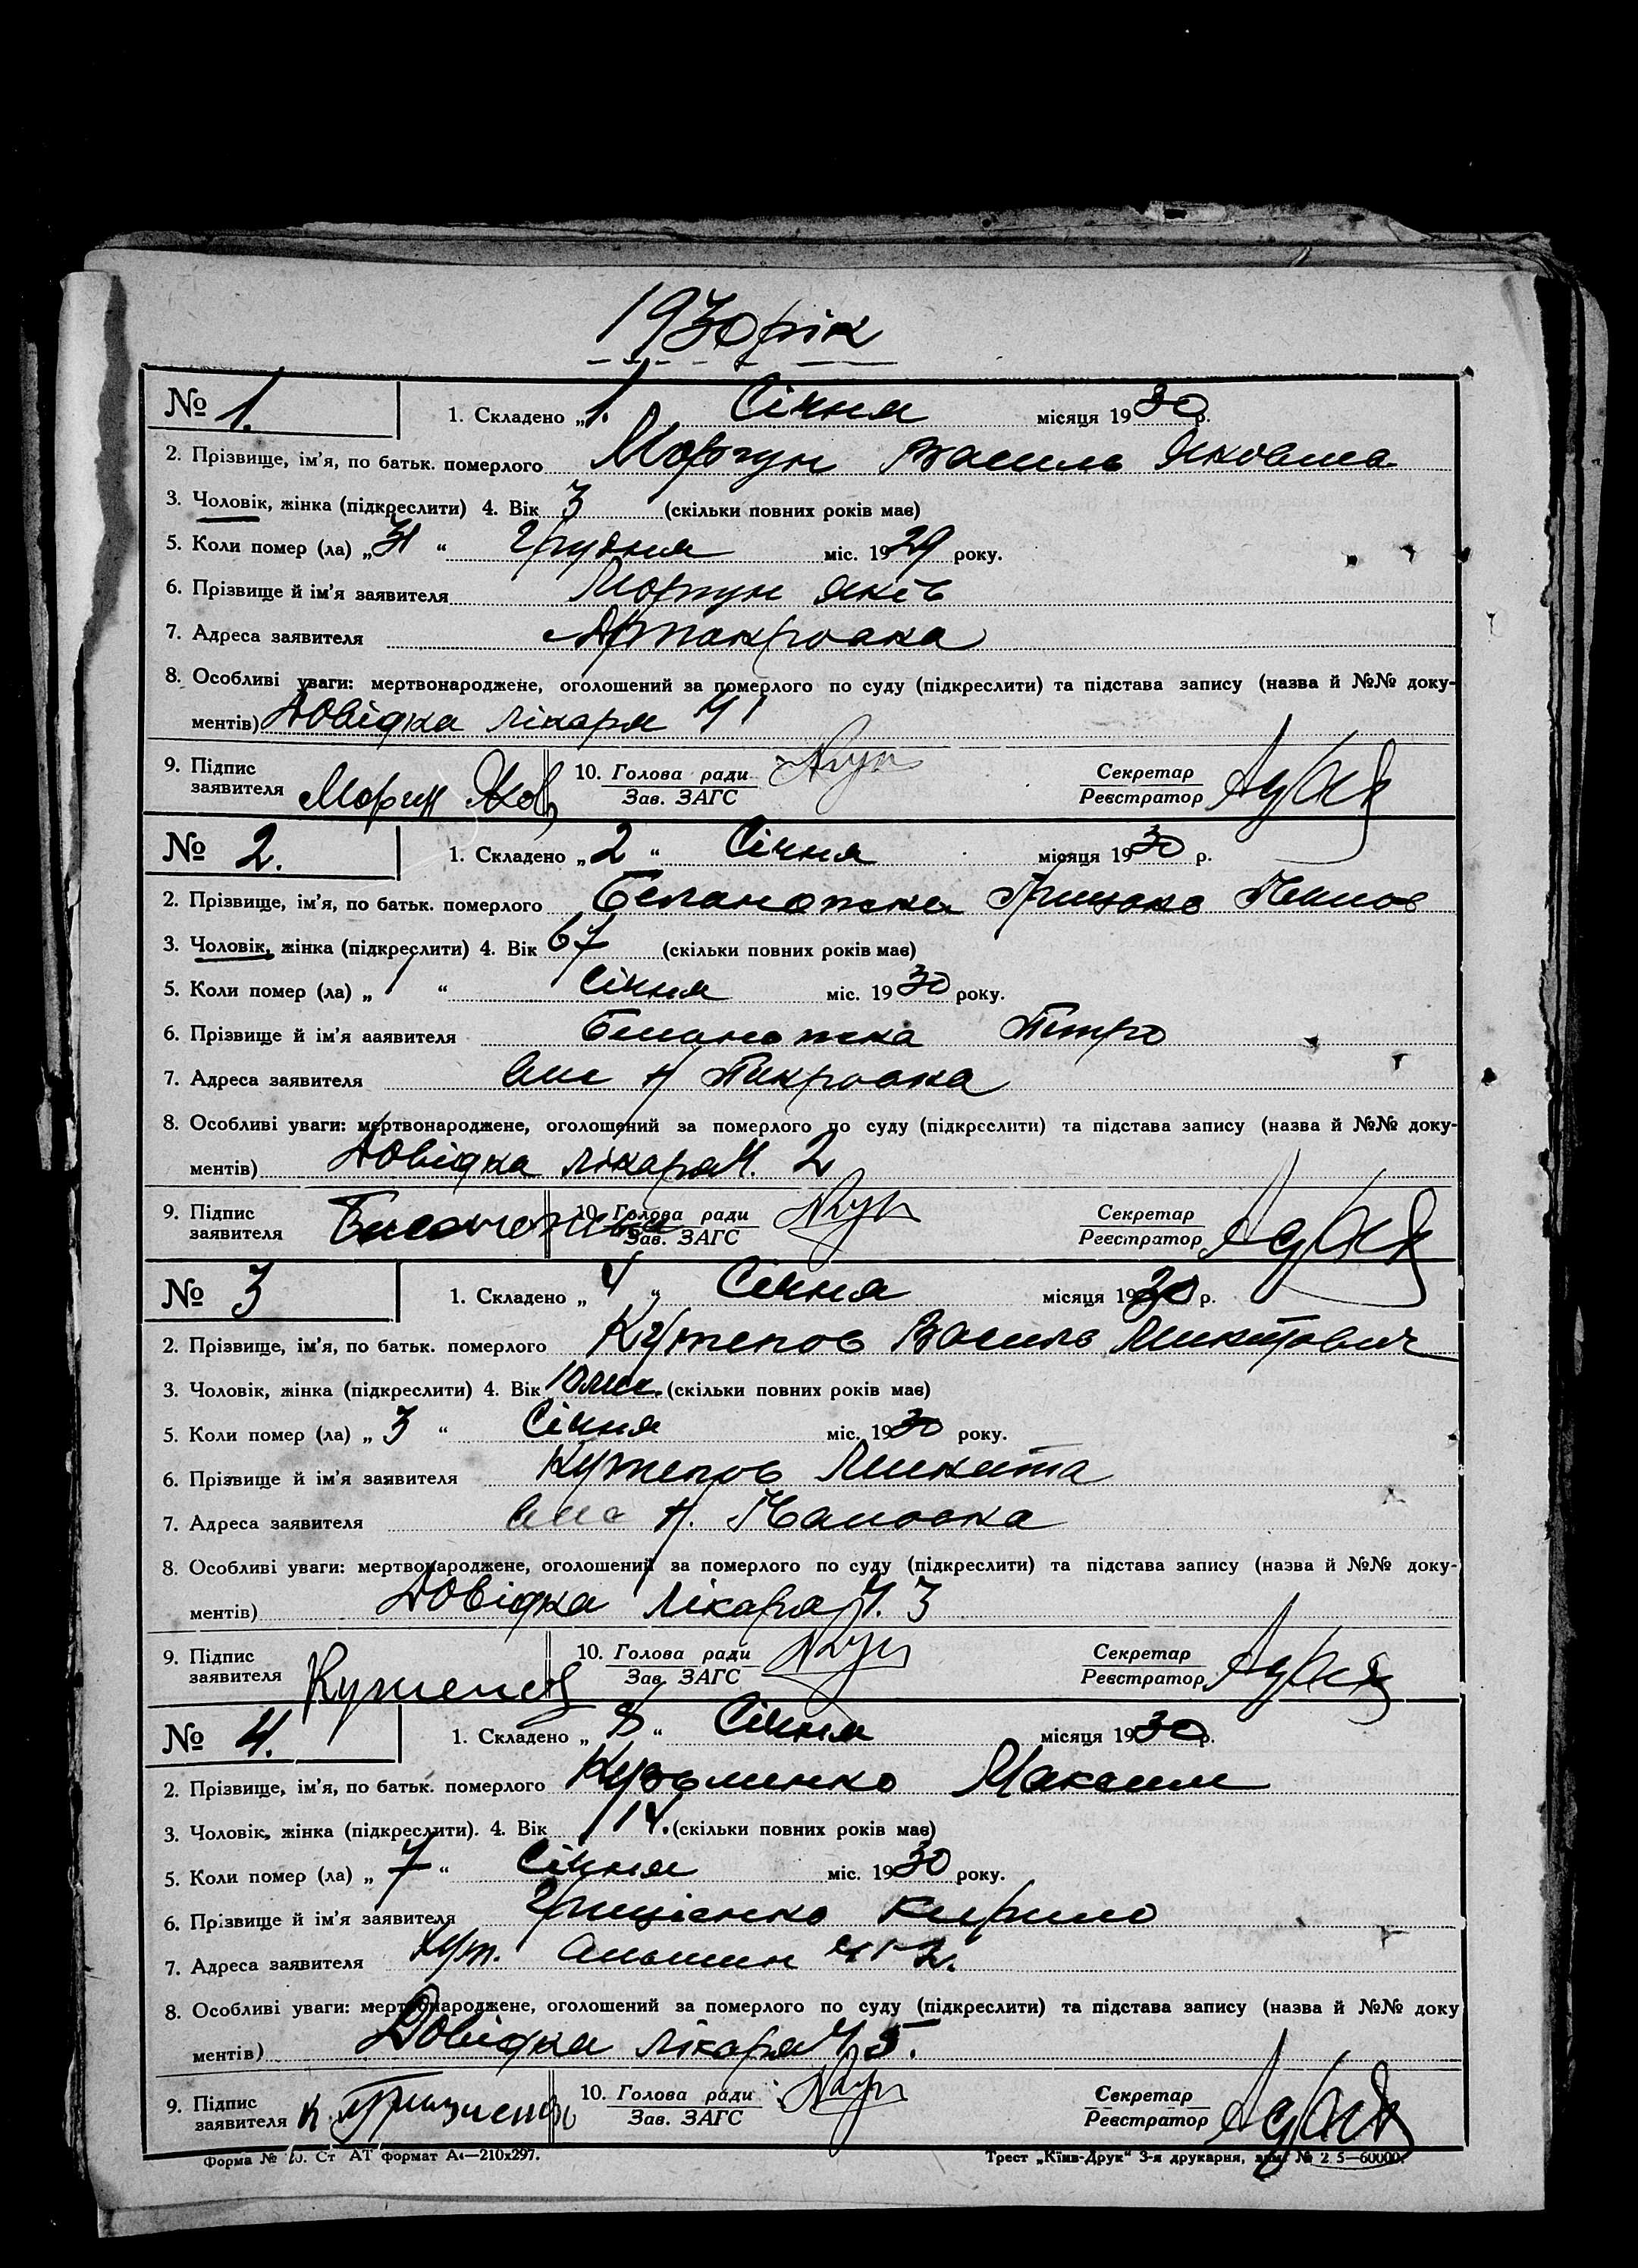 1930 рік
№ 1. 1. Складено „1. Січня місяця 1930 р.
2. Прізвище, ім'я, по батьк. померлого Моргун Василь Якович
3. Чоловік, жінка (підкреслити) 4. Вік 3 (скільки повних років має)
5. Коли помер (ла) „31“ Грудня міс. 1929 року.
6. Прізвище й ім'я заявителя Моргун Яків
7. Адреса заявителя
8. Особливі уваги: мертвонароджене, оголошений за померлого по суду (підкреслити) та підстава запису (назва й №№ доку-
ментів) Довідка лікаря Ч 1
9. Підпис заявителя Моргун Яков 10. Голова ради Зав. ЗАГС Секретар Реєстратор
№ 2. 1. Складено „2“ Січня місяця 1930 р.
2. Прізвище, ім'я, по батьк. померлого
3. Чоловік, жінка (підкреслити) 4. Вік 67 (скільки повних років має)
5. Коли помер (ла) „1“ Січня міс. 1930 року.
6. Прізвище й ім'я ааявителя Петро
7. Адреса заявителя
8. Особливі уваги: мертвонароджене, оголошений за померлого по суду (підкреслити) та підстава запису (назва й №№ доку-
ментів) Довідка лікаря Ч. 2
9. Підпис заявителя 10. Голова ради Зав. ЗАГС Секретар Реєстратор
№ 3 1. Складено „4“ Січня місяця 1930 р.
2. Прізвище, ім'я, по батьк. померлого Кутепов Василь Микитович
3. Чоловік, жінка (підкреслити) 4. Вік 10 міс. (скільки повних років має)
5. Коли помер (ла) „3“ Січня міс. 1930 року.
6. Прізвище й ім'я заявителя Кутепов Микита
7. Адреса заявителя
8. Особливі уваги: мертвонароджене, оголошений за померлого по суду (підкреслити) та підстава запису (назва й №№ доку-
ментів) Довідка лікаря Ч. 3
9. Підпис заявителя Кутепов 10. Голова ради Зав. ЗАГС Секретар Реєстратор
№ 4. 1. Складено „8“ Січня місяця 1930 р.
2. Прізвище, ім'я, по батьк. померлого Кузьминко Максим
3. Чоловік, жінка (підкреслити). 4. Вік (скільки повних років має)
5. Коли помер (ла) „7“ Січня міс. 1930 року.
6. Прізвище й ім'я заявителя Грищенко Кирило
7. Адреса заявителя Хут.
8. Особливі уваги: мертвонароджене, оголошений за померлого по суду (підкреслити) та підстава запису (назва й №№ доку
ментів) Довідка лікаря Ч 5.
9. Підпис заявителя 10. Голова ради Зав. ЗАГС Секретар Реєстратор
Форма № Ст АТ формат А4—210х297. Трест „Київ-Друк“ 3-я друкарня,